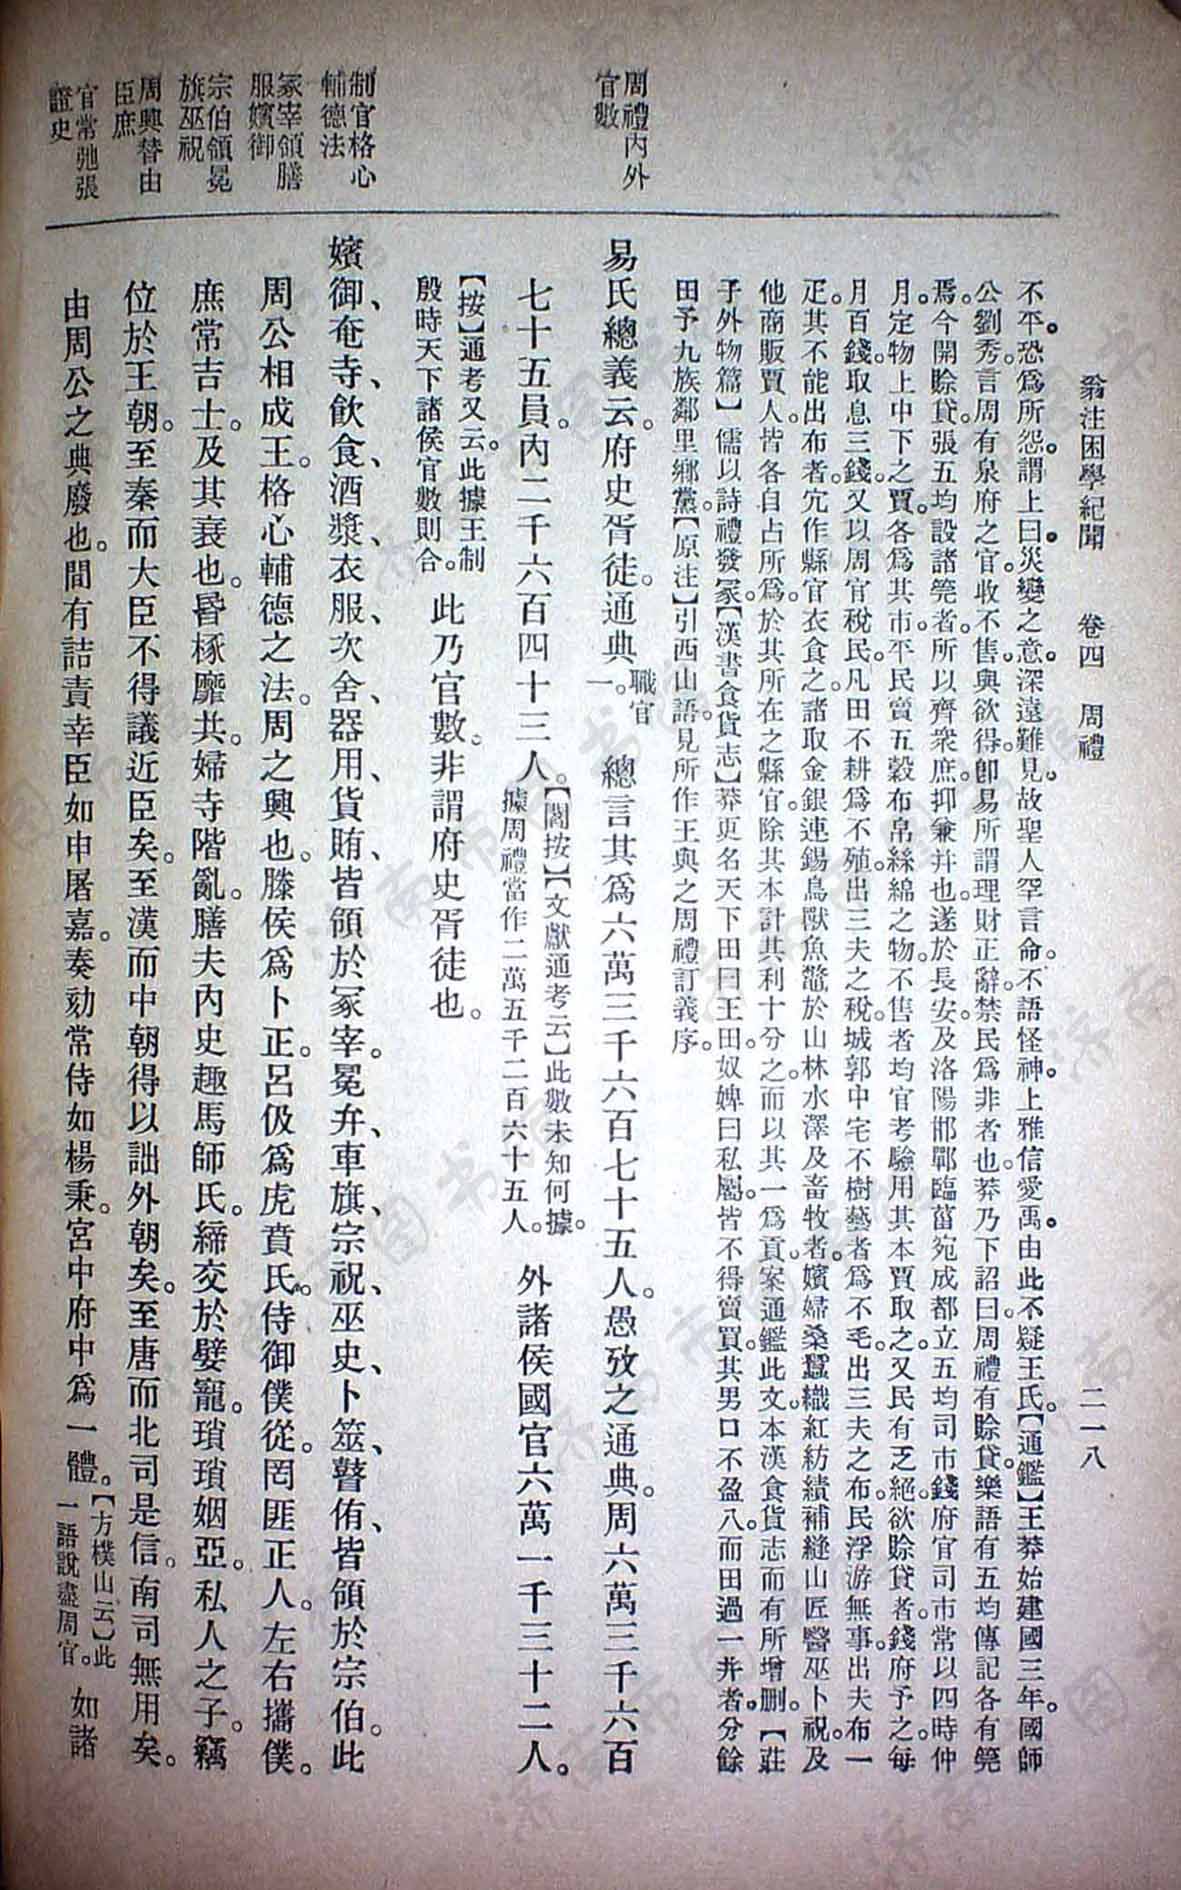 翁注困學紀聞　卷四　周禮　二一八
不平。恐爲所怨。謂上曰。災變之意。深遠難見。故聖人罕言命。不語怪神。上雅信愛禹。由此不疑王氏。【通鑑】王莽始建國三年。國師
公劉秀。言周有泉府之官。收不售。與欲得。卽易所謂理財正辭。禁民爲非者也。莽乃下詔曰。周禮有賒貸。樂語有五均。傳記各有筦
焉。今開賒貸。張五均。設諸筦者。所以齊衆庶。抑兼幷也。遂於長安。及洛陽邯鄲臨菑宛成都。立五均司市。錢府官。司市常以四時仲
月。定物上中下之賈。各爲其市平。民賣五穀布帛絲綿之物。不售者。均官考驗。用其本賈取之。又民有乏絕。欲賒貸者。錢府予之。每
月百錢。取息三錢。又以周官稅民。凡田不耕爲不殖。出三夫之稅。城郭中宅不樹藝者。爲不毛。出三夫之布。民浮游無事。出夫布一
疋。其不能出布者。宂作縣官衣食之。諸取金銀連錫鳥獸魚鼈於山林水澤及畜牧者。嬪婦桑蠶織紝紡績補縫。山匠醫巫卜祝。及
他商販賈人。皆各自占所爲。於其所在之縣官。除其本計其利。十分之。而以其一爲貢。案通鑑此文。本漢食貨志。而有所增刪。【莊
子外物篇】儒以詩禮發冢。【漢書食貨志】莽更名天下田曰王田。奴婢曰私屬。皆不得賣買。其男口不盈八。而田過一井者。分餘
田予九族鄰里鄉黨。【原注】引西山語。見所作王與之周禮訂義序。
周禮內外
官數
易氏總義云。府史胥徒。通典職官
一。總言其爲六萬三千六百七十五人。愚攷之通典。周六萬三千六百
七十五員。內二千六百四十三人。【閻按】【文獻通考云】此數未知何據。
據周禮當作二萬五千二百六十五人。外諸侯國官六萬一千三十二人。
【按】通考又云。此據王制
殷時天下諸侯官數則合。此乃官數。非謂府史胥徒也。
制官格心
輔德法
冢宰領膳
服嬪御
宗伯領冕
旗巫祝
周興替由
臣庶
官常弛張
證史
嬪御、奄寺、飮食、酒漿、衣服、次舍、器用、貨賄、皆領於冢宰。冕弁、車旗、宗祝、巫史、卜筮、瞽侑、皆領於宗伯。此
周公相成王。格心輔德之法。周之興也。滕侯爲卜正。呂伋爲虎賁氏。侍御僕從。罔匪正人。左右攜僕。
庶常吉士。及其衰也。昬椓靡共。婦寺階亂。膳夫內史趣馬師氏。締交於嬖寵。瑣瑣姻亞。私人之子。竊
位於王朝。至秦而大臣不得議近臣矣。至漢而中朝得以詘外朝矣。至唐而北司是信。南司無用矣。
由周公之典廢也。間有詰責幸臣如申屠嘉。奏劾常侍如楊秉。宮中府中爲一體。【方樸山云】此
一語說盡周官。如諸